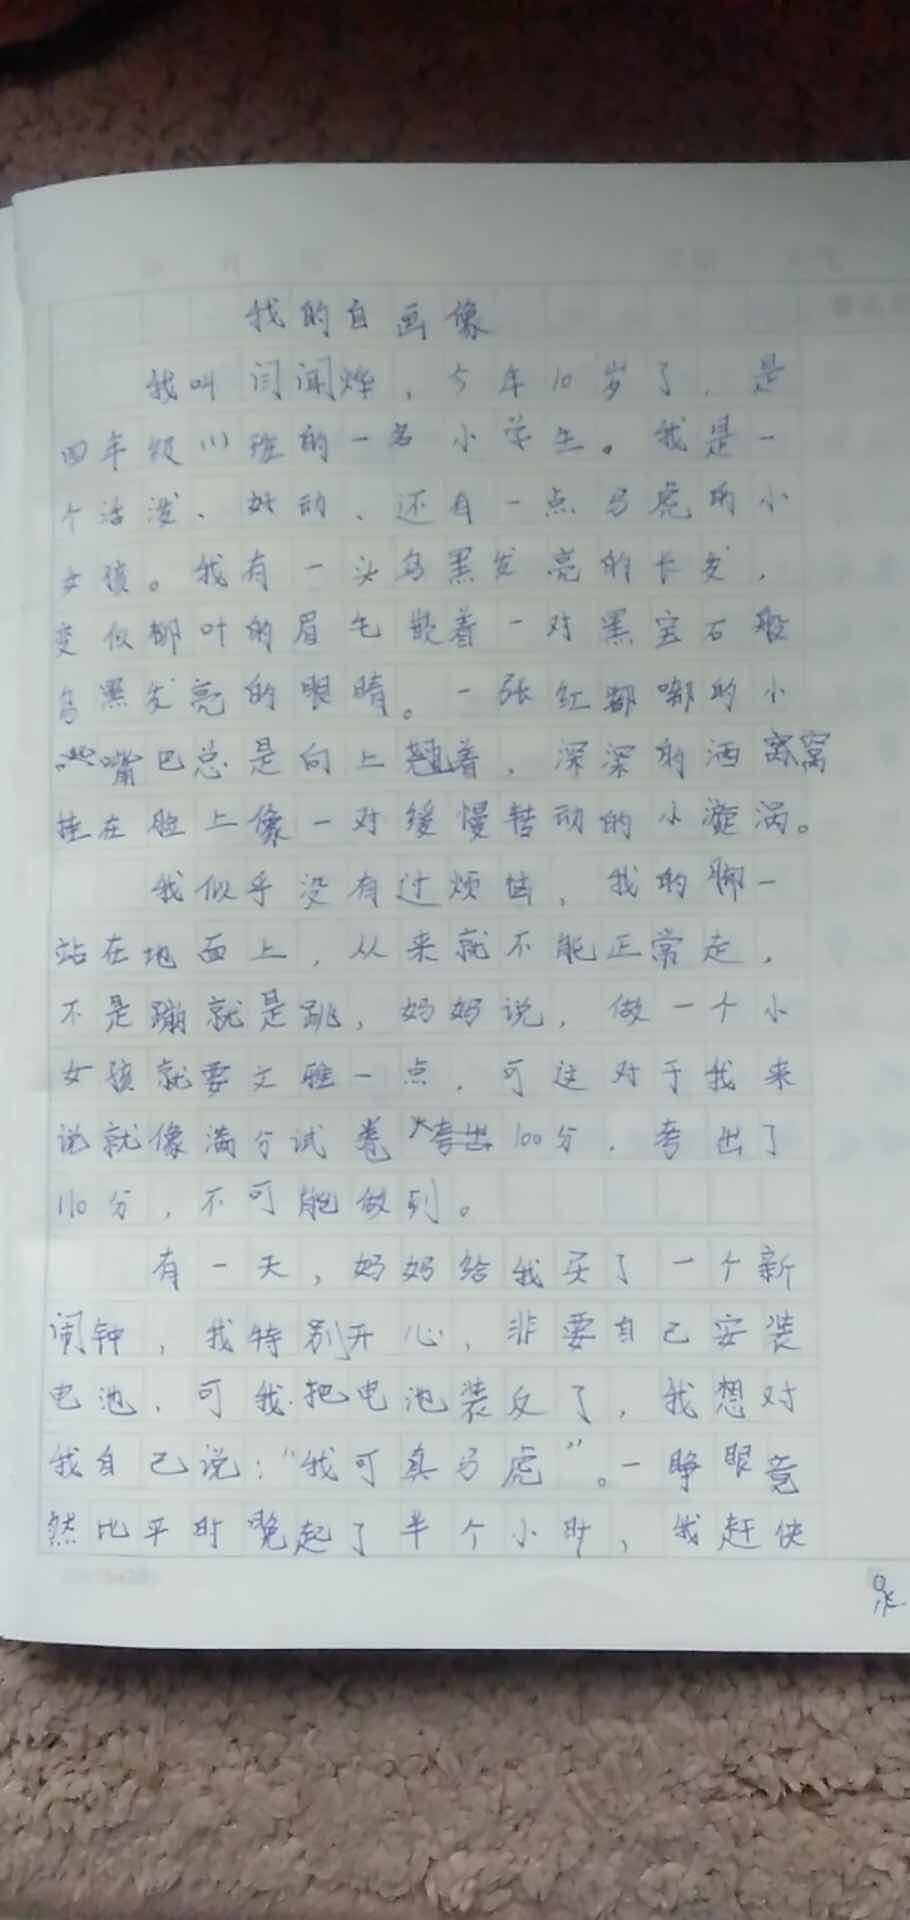 我的自画像
我叫闫闻烨，今年10岁了，是
四年级(1)班的一名小学生。我是一
个活泼、好动、还有一点马虎的小
女孩。我有一头乌黑发亮的长发，
变似柳叶的眉毛嵌着一对黑宝石般
乌黑发亮的眼睛。一张红嘟嘟的小
嘴巴总是向上翘着，深深的酒窝窝
挂在脸上像一对缓慢转动的小漩涡。
我似乎没有过烦恼，我的脚一
站在地面上，从来就不能正常走，
不是蹦就是跳，妈妈说，做一个小
女孩就要文雅一点，可这对于我来
说就像满分试卷100分，考出了
110分，不可能做到。
有一天，妈妈给我买了一个新
闹钟，我特别开心，非要自己安装
电池，可我把电池装反了，我想对
我自己说：“我可真马虎”。一睁眼竟
然比平时晚起了半个小时，我赶快